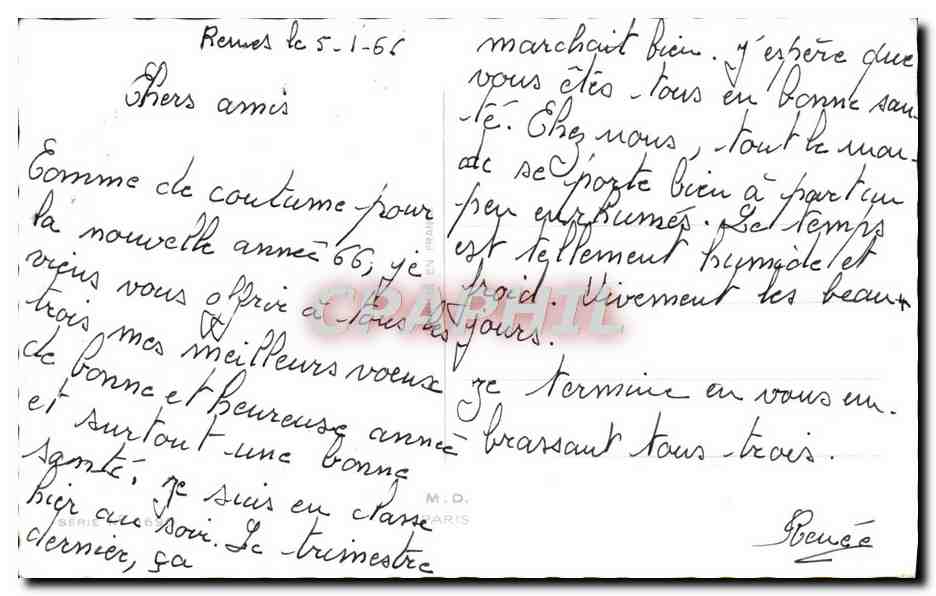 Rennes le 5-1-66
Chers amis
Comme de coutume pour
la nouvelle année 66, je
viens vous offrir à tous les
trois mes meilleurs voeux
de bonne et heureuse année
et surtout une bonne
santé. Je suis en classe
hier au soir. Le trimestre
dernier, ça
marchait bien. J'espère que
vous êtes tous en bonne san-
té. Chez nous, tout le mon-
de se porte bien à part un
peu enrhumés. Le temps
est tellement humide et
froid. Vivement les beaux
jours.
Je termine en vous em-
brassant tous trois.
Renée
EN FRAN
CPARPHIL
M.D.
PARIS
SERIE